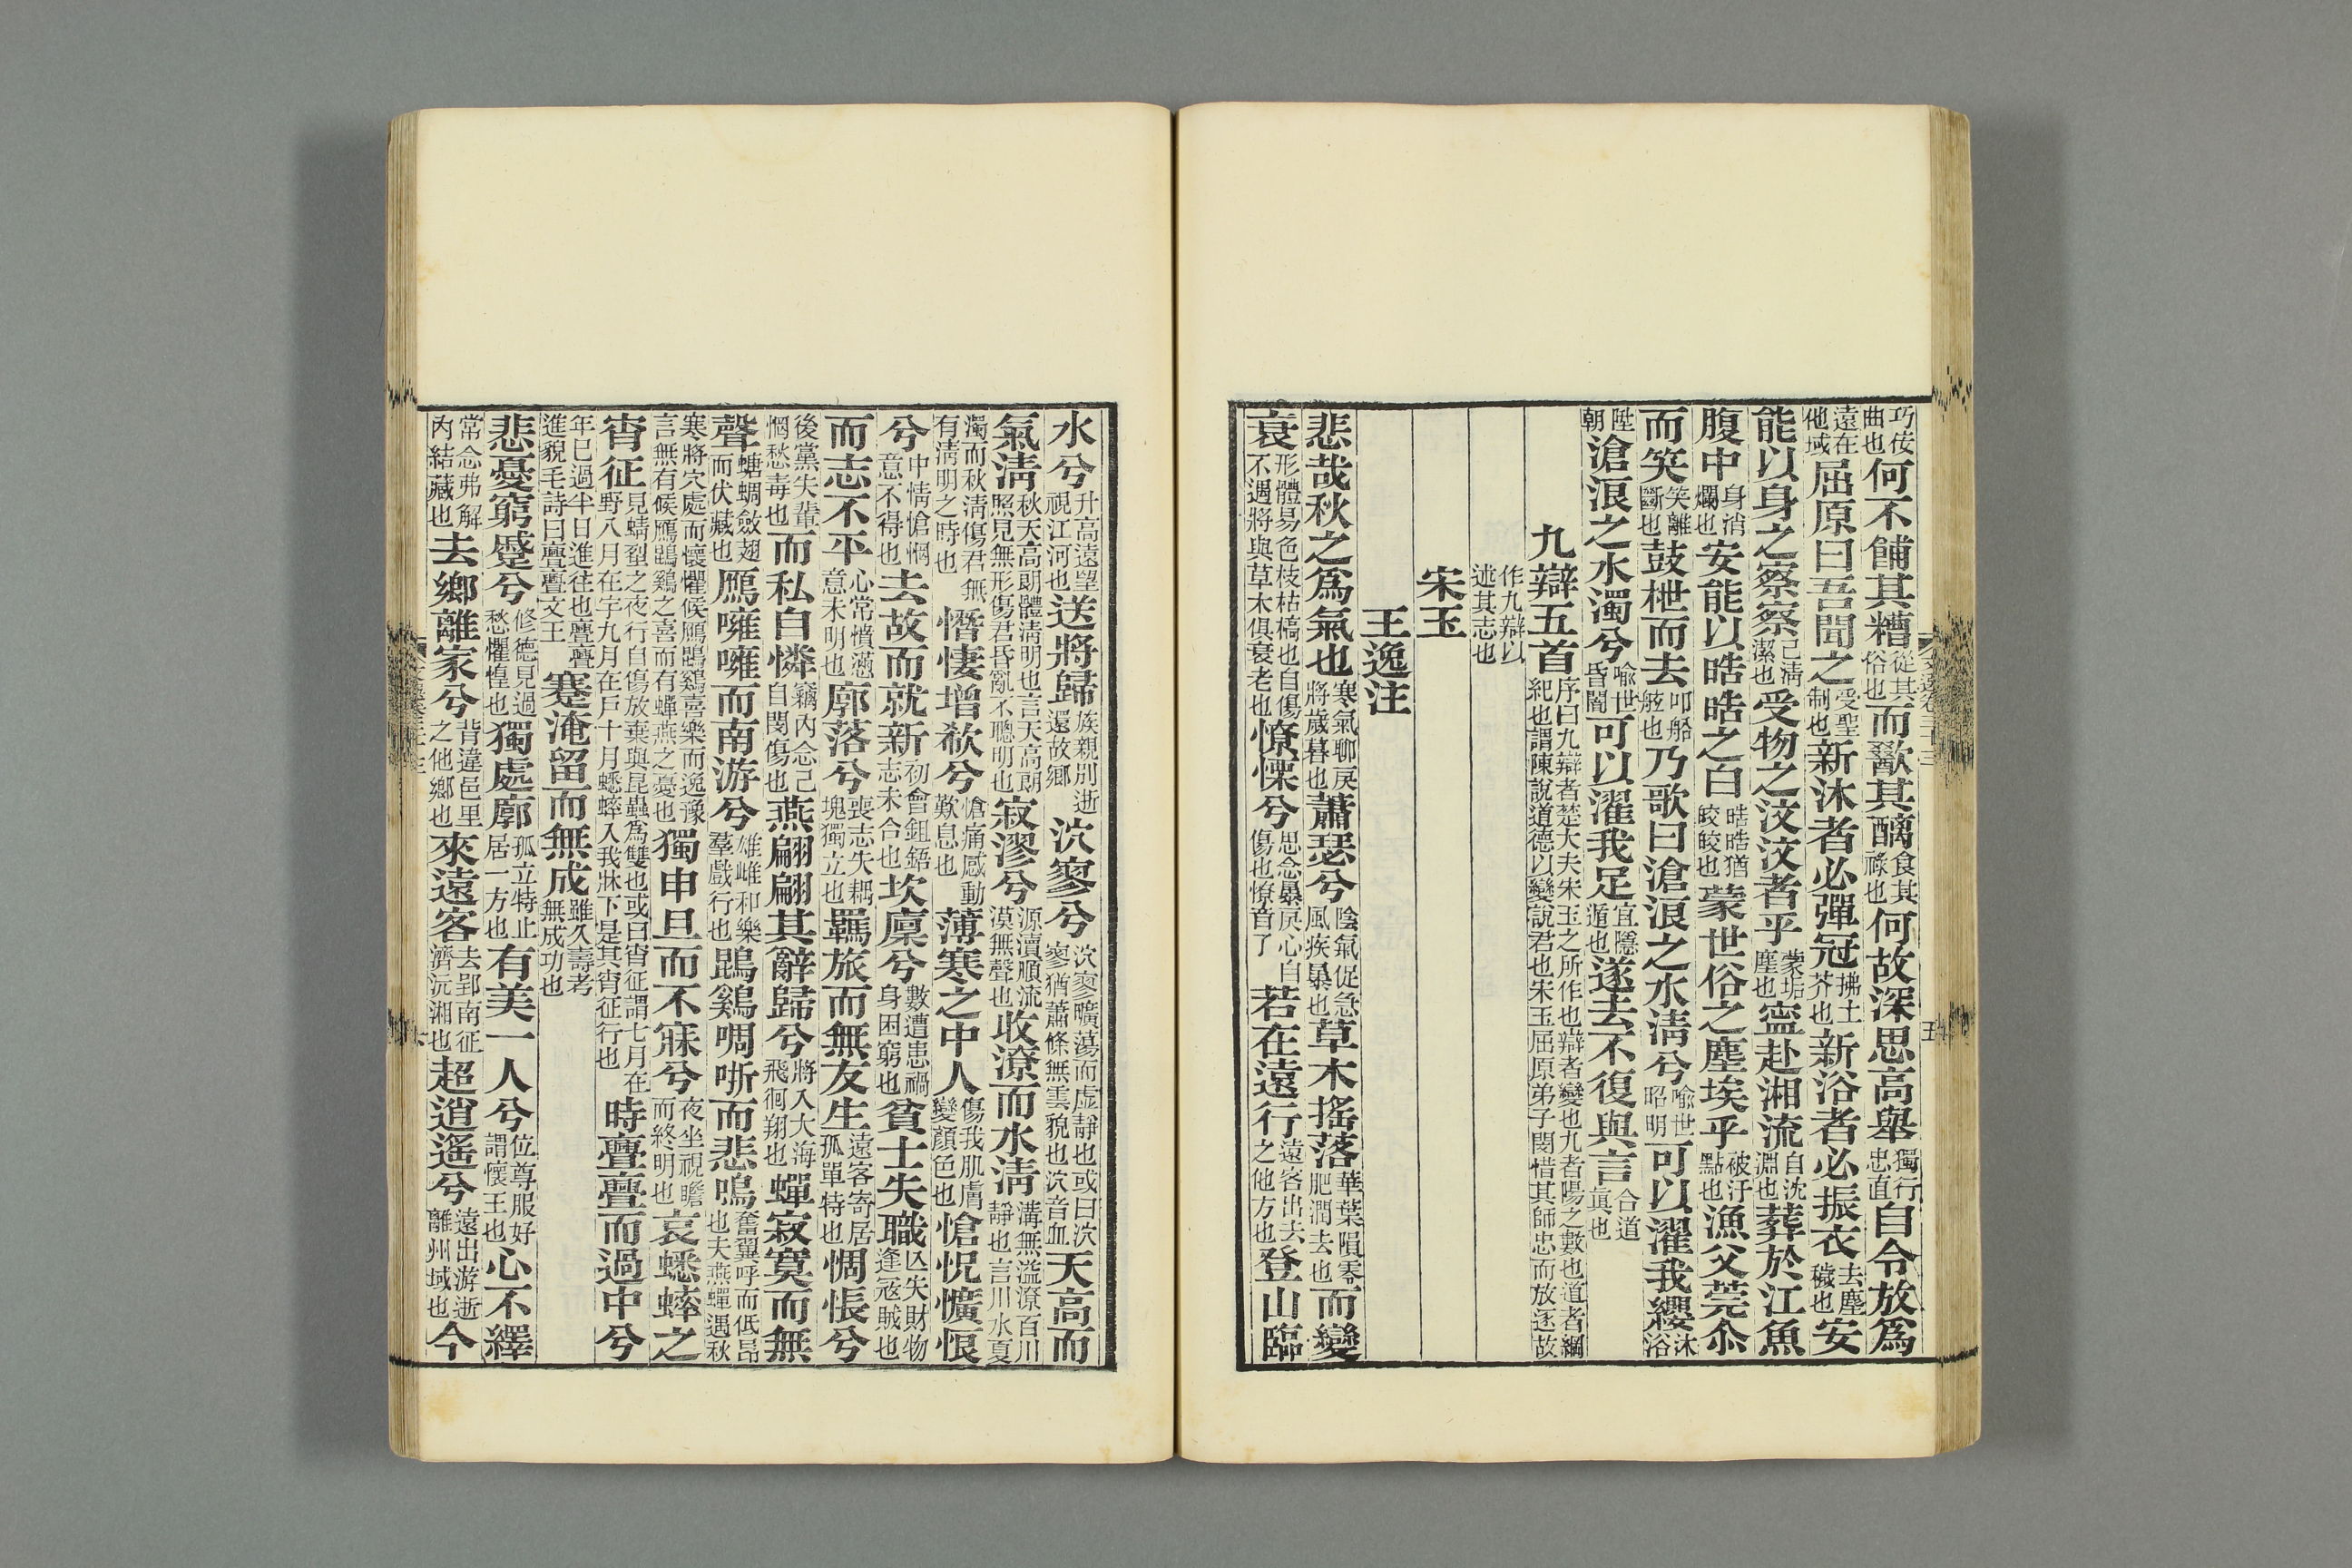 巧佞曲也何不餔其糟從其俗也而歠其醨食其祿也何故深思高舉獨行忠直自令放爲
遠在他域屈原曰吾聞之受聖制也新沐者必彈冠拂土芥也新浴者必振衣去塵穢也安
能以身之察察己清潔也受物之汶汶者乎蒙垢塵也寧赴湘流自沈淵也葬於江魚
腹中身消爛也安能以晧晧之白晧晧猶皎皎也蒙世俗之塵埃乎被汙點也漁父莞尒
而笑笑離齗也鼓枻而去叩船舷也乃歌曰滄浪之水清兮喻世昭明可以濯我纓沐浴
陞朝滄浪之水濁兮喻世昏闇可以濯我足宜隱遁也遂去不復與言合道眞也
九辯五首序曰九辯者楚大夫宋玉之所作也辯者變也九者陽之數也道者綱紀也謂陳說道德以變說君也宋玉屈原弟子閔惜其師忠而放逐故
作九辯以述其志也
宋玉
王逸注
悲哉秋之爲氣也寒氣聊戾將歲暮也蕭瑟兮陰氣促急風疾暴也草木搖落華葉隕零肥潤去也而變
衰形體易色枝枯槁也自傷不遇將與草木俱衰老也憭慄兮思念暴戾心自傷也憭音了若在遠行遠客出去之他方也登山臨
水兮升高遠望視江河也送將歸族親別逝還故鄉泬寥兮泬寥曠蕩而虛靜也或曰泬寥猶蕭條無雲貌也泬音血天高而
氣清秋天高朗體清明也言天高朗照見無形傷君昏亂不聰明也寂漻兮源瀆順流漠無聲也收潦而水清溝無溢潦百川靜也言川水夏
濁而秋清傷君無有清明之時也憯悽增欷兮愴痛感動歎息也薄寒之中人傷我肌膚變顏色也愴怳懭悢
兮中情愴惘意不得也去故而就新初會鉏鋙志未合也坎廩兮數遭患禍身困窮也貧士失職亾失財物逢寇賊也
而志不平心常憤懣意未明也廓落兮喪志失耦塊獨立也羈旅而無友生遠客寄居孤單特也惆悵兮
後黨失輩惘愁毒也而私自憐竊內念己自閔傷也燕翩翩其辭歸兮將入大海飛徊翔也蟬寂寞而無
聲螗蜩斂翅而伏藏也鴈噰噰而南游兮雄雌和樂羣戲行也鵾鷄啁哳而悲鳴奮翼呼而低昂也夫燕蟬遇秋
寒將穴處而懷懼候鴈鵾鷄喜樂而逸豫言無有候鴈鵾鷄之喜而有蟬燕之憂也獨申旦而不寐兮夜坐視瞻而終明也哀蟋蟀之
宵征見蜻蛚之夜行自傷放棄與昆蟲爲雙也或曰宵征謂七月在野八月在宇九月在戶十月蟋蟀入我牀下是其宵征行也時亹亹而過中兮
年已過半日進往也亹亹進貌毛詩曰亹亹文王蹇淹留而無成雖久壽考無成功也
悲憂窮蹙兮修德見過愁懼惶也獨處廓孤立特止居一方也有美一人兮位尊服好謂懷王也心不繹
常念弗解內結藏也去鄉離家兮背違邑里之他鄉也來遠客去郢南征濟沅湘也超逍遙兮遠出游逝離州域也今